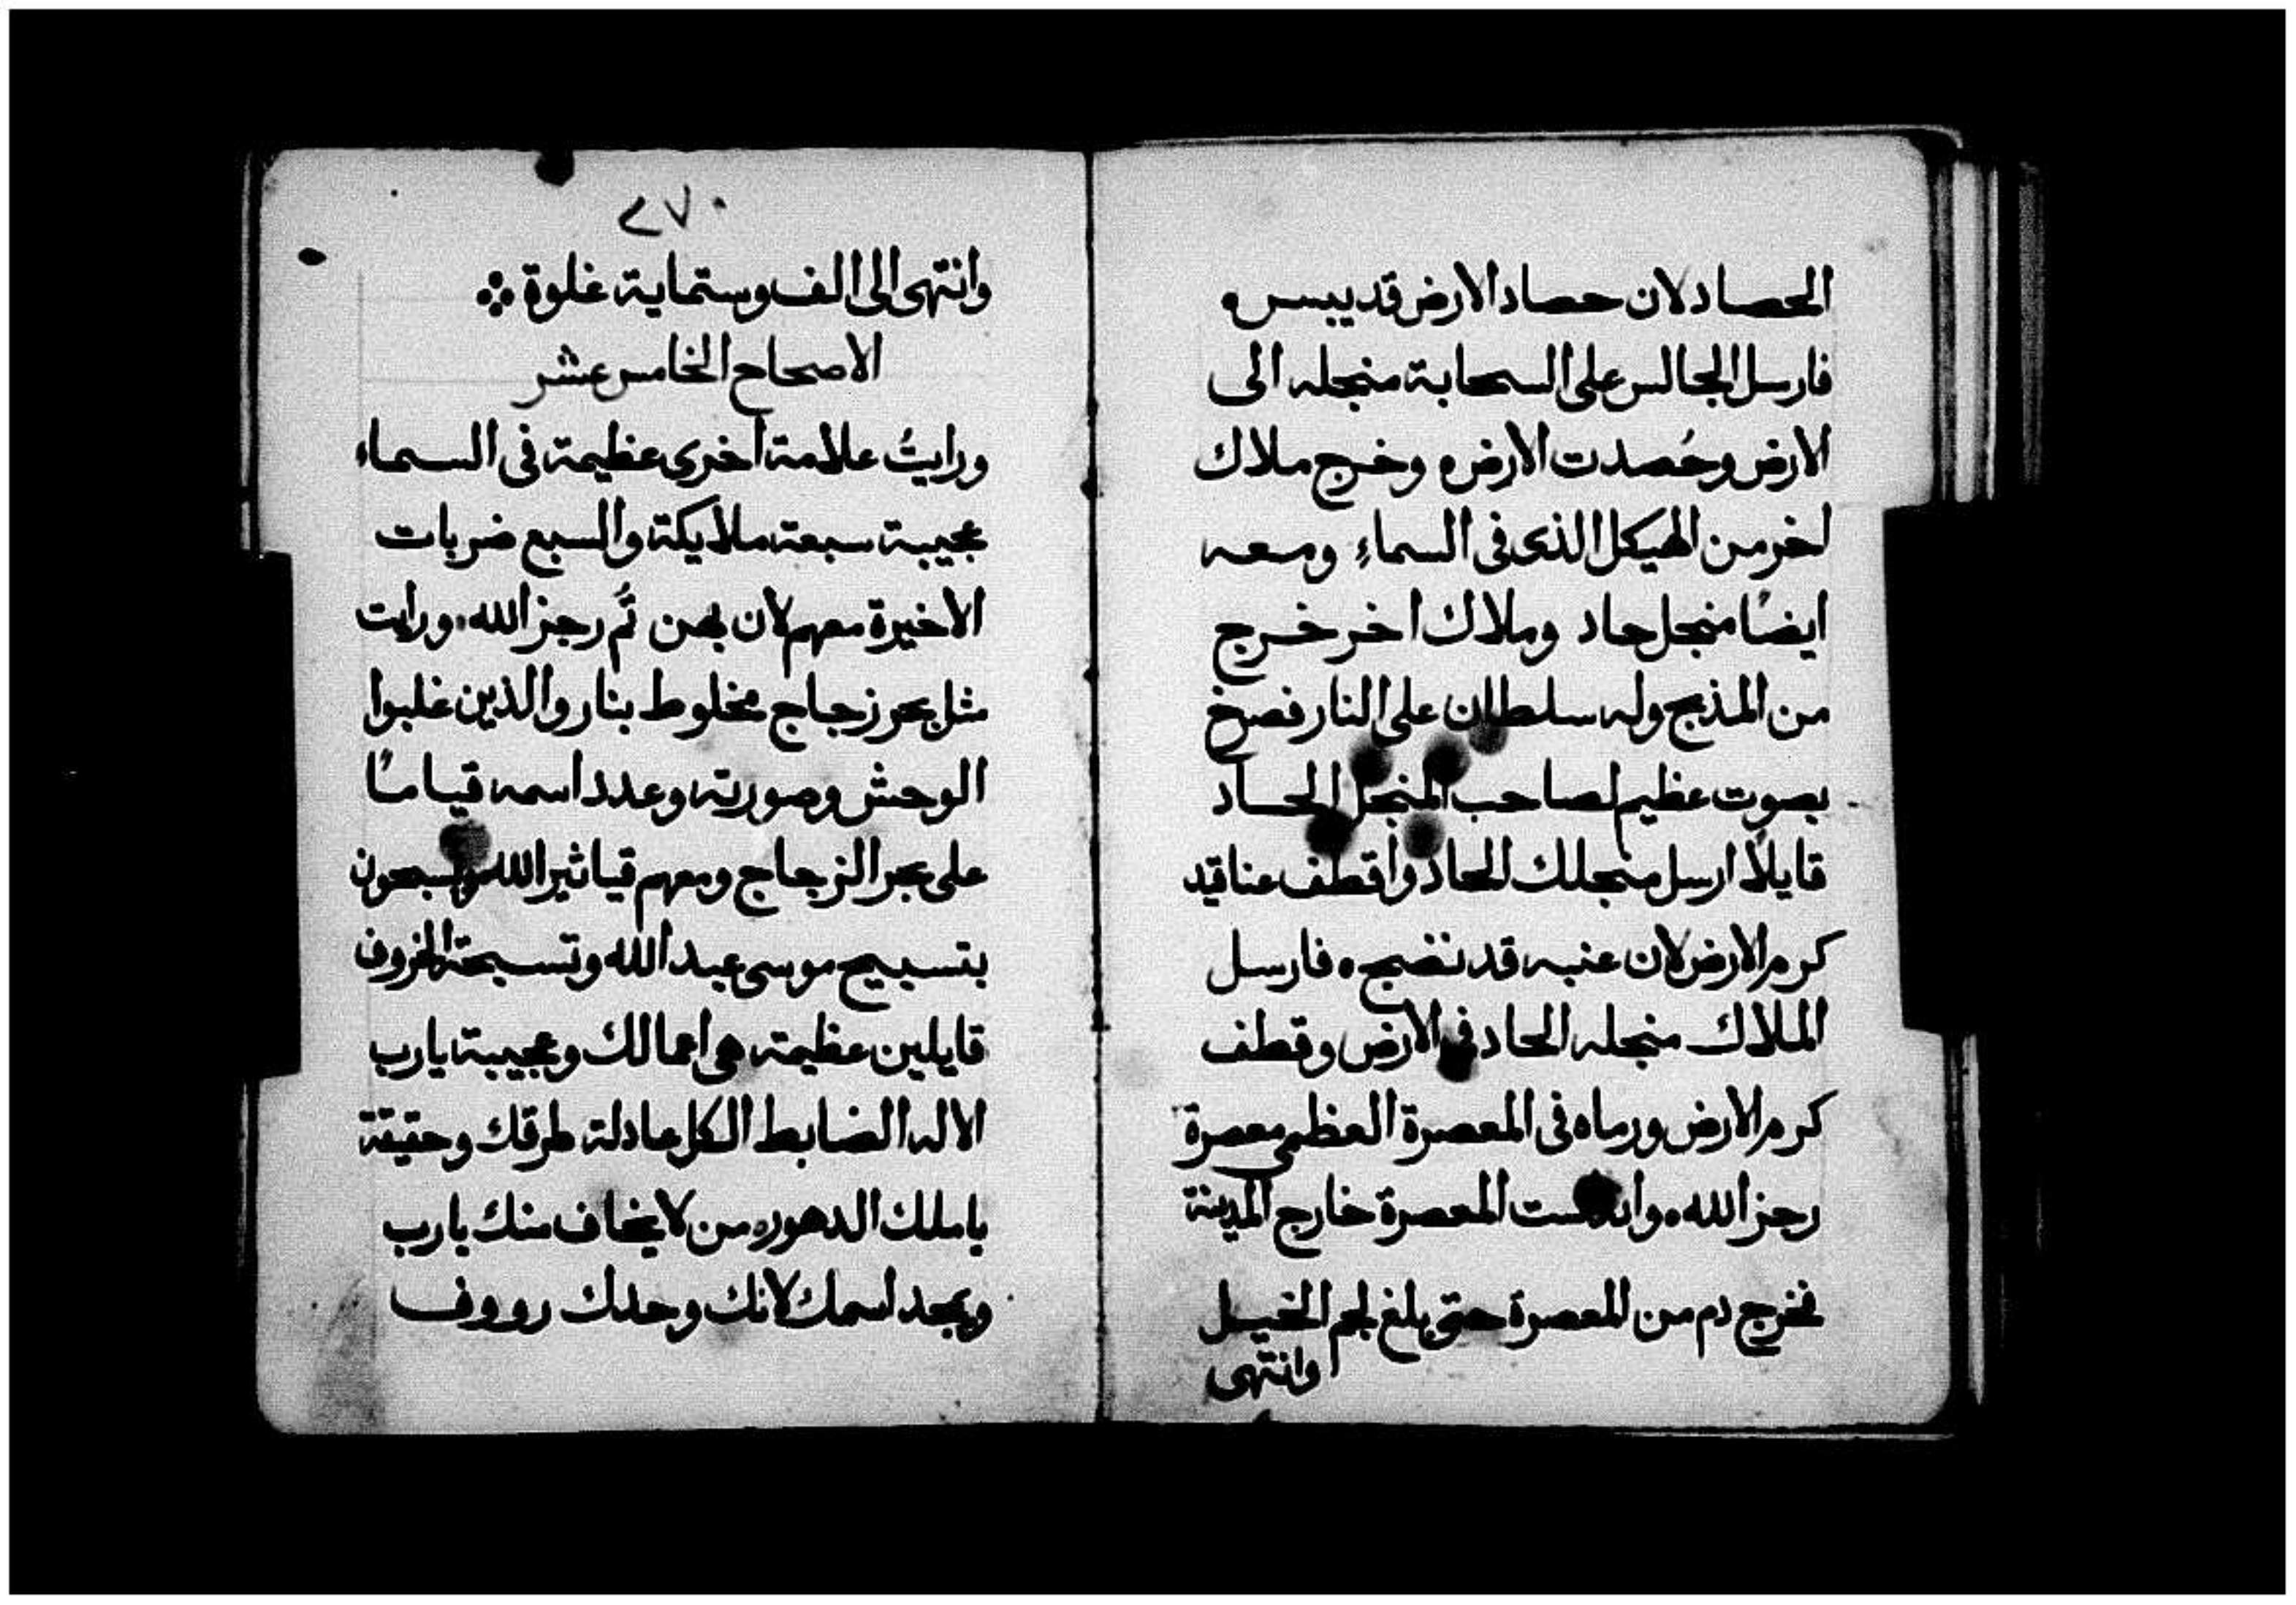 الحصاد لان حصاد الارض قد يبس ه
فارسل الجالس على السحابة منجله الى
الارض وحُصدت الارض ه وخرج ملاك
اخر من الهيكل الذى فى السماءِ ومعه
ايضًا منجل حاد وملاك اخر خرج
من المذبح وله سلطان على النار فصرخ
بصوت عظيم لصاحب المنجل الحاد
قايلاً ارسل منجلك الحاد واقطف عناقيد
كرم الارض لان عنبه قد نضج ه فارسل
الملاك منجله الحاد فى الارض وقطف
كرم الارض ورماه فى المعصرة العظمى معصرة
رجز الله ه المعصرة خارج المدينة
فخرج دم من المعصرة حتى بلغ لجم الخيل
وانتهى
٢٧٠
وانتهى الى الف وستماية غلوة
الاصحاح الخامس عشر
ورايتُ علامة اخرى عظيمة فى السماء
عجيبة سبعة ملايكة والسبع ضربات
الاخيرة معهم لان بهن تُم رجز الله ورايت
مثل بحر زجاج مخلوط بنار والذين غلبوا
الوحش وصورته وعدد اسمه قيامًا
على بحر الزجاج ومعهم قياثير الله ويسبحون
بتسبيح موسى عبد الله وتسبحة الخروف
قايلين عظيمة هى اعمالك وعجيبة يارب
الاله الضابط الكل عادلة طرقك وحقيقة
ياملك الدهور من لا يخاف منك يارب
ويمجد اسمك لانك وحدك رووف